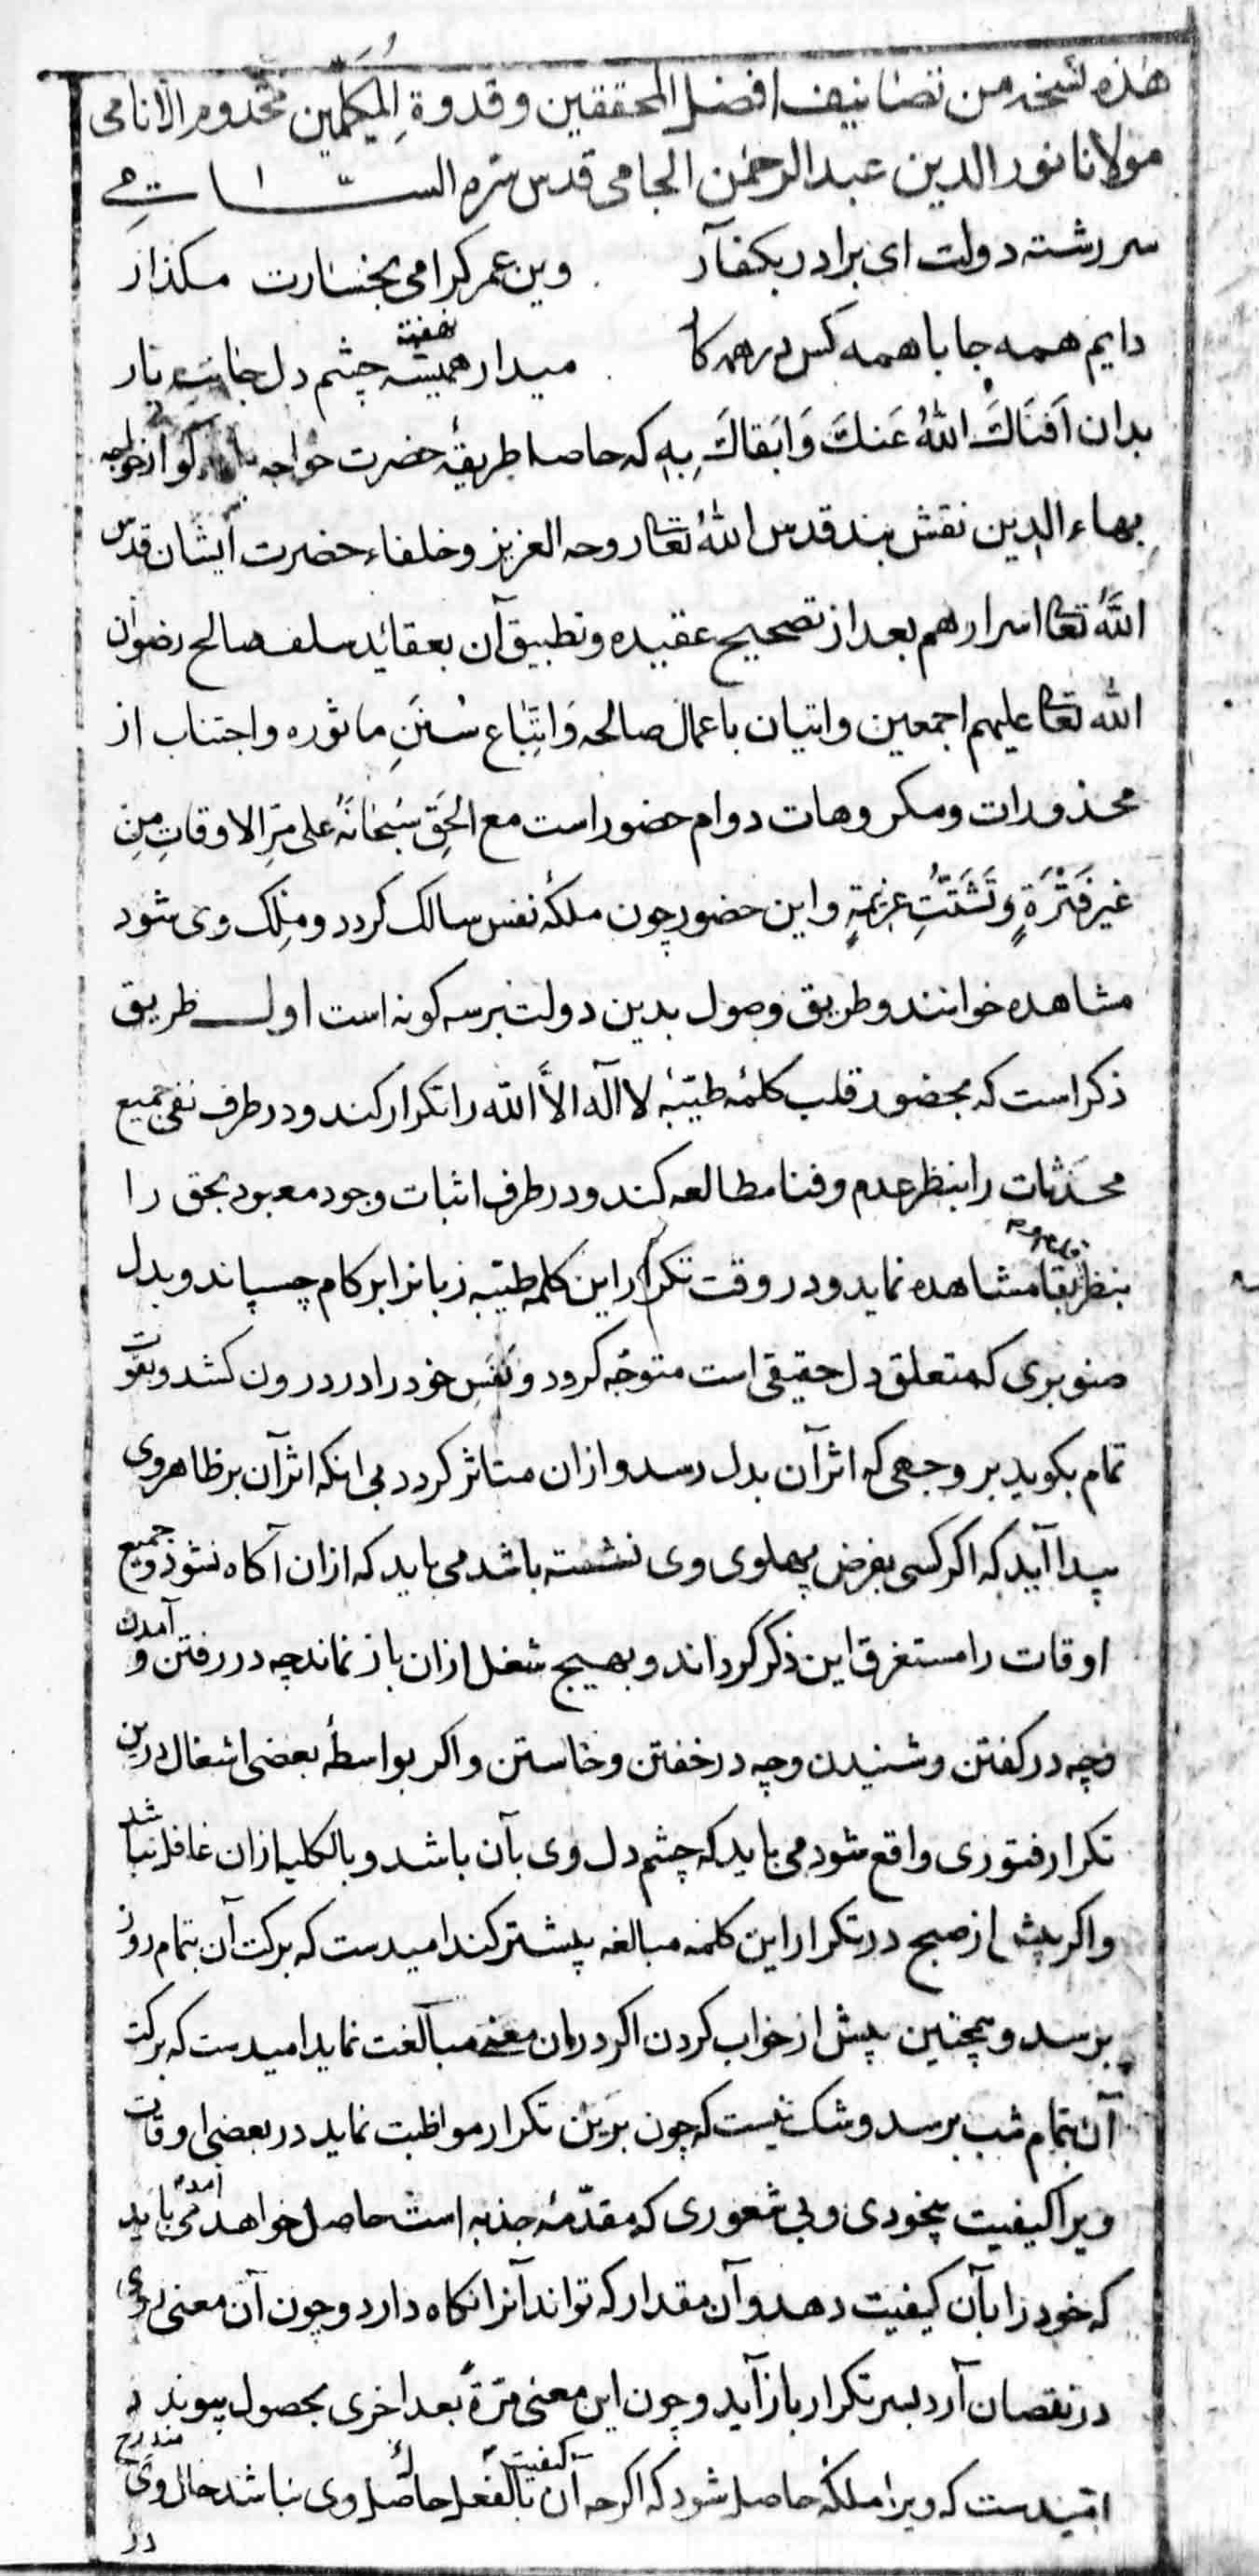 هذه نسخه من تصانیف افضل المحققین و قدوة المکملین مخدوم الانامی
مولانا نور الدین عبد الرحمن الجامی قدس سره السامی
سر رشته دولت ای برادر بکف آر وین عمر کرامی بخسارت مکذار
دایم همه جا با همه کس در همه کار میدار نهفته چشم دل جانب یار
بدان اَفنَاكَ اللهُ عَنكَ وَاَبقاكَ بِهِ که حاصل طریقهٔ حضرت خواجه
بهاء الدین نقش بند قدس اللهُ تعالی روحه العزیز و خلفاء حضرت ایشان قدس
اللّٰهُ تعالی اسرارهم بعد از تصحیح عقیده و تطبیق آن بعقائد سلف صالح رضوان
الله تعالی علیهم اجمعین و اتیان باعمال صالحه وَ اتِّباع سُنَنِ ماثوره و اجتناب از
محذورات و مکروهات دوام حضور است مع الحَقِ سُبحَانَهُ علی مرِّ الاوقاتِ مِن
غیر فَتْرَةٍ وَ تَشَتُّتِ عزیمةٍ و این حضور چون ملکهٔ نفس سالک کردد و ملِک وی شود
مشاهده خوانند و طریق وصول بدین دولت بر سه کونه است اول طریق
ذکر است که بحضور قلب کلمهٔ طیّبهٔ لا اله الاَّ الله را تکرار کند و در طرف نفی جمیع
محدَثات را بنظر عدم و فنا مطالعه کند و در طرف اثبات وجود معبود بحق را
بنظر بقا مشاهده نماید و در وقت تکرار این کلمه طیّبه زبانرا بر کام چسپاند و بدل
صنوبری که متعلق دل حقیقی است متوجّه کردد و نَفَسِ خود را در درون کشد و بقوت
تمام بکوید بر وجهی که اثر آن بدل رسد و از ان متاثر کردد بی انکه اثر آن بر ظاهر وی
پیدا آید که اکر کسی بفرض پهلوی وی نشسته باشد می باید که از ان آکاه نشود و جمیع
اوقات را مستغرق این ذکر کرداند و بهیچ شغل از ان باز نماند چه در رفتن و آمدن
و چه در کفتن و شنیدن و چه در خفتن و خاستن و اکر بواسطهٔ بعضی اشغال درین
تکرار فتوری واقع شود می باید که چشم دل وی بآن باشد و بالکلیه از ان غافل نباشد
و اکر پیش از صبح در تکرار این کلمه مبالغه پیشتر کند امیدست که برکت آن بتمام روز
برسد و همچنین پیش از خواب کردن اکر در ان معنی مبالغت نماید امیدست که برکت
آن بتمام شب برسد و شک نیست که چون برین تکرار مواظبت نماید در بعضی اوقات
ویرا کیفیت بیخودی و بی شعوری که مقدّمهٔ جذبه است حاصل خواهد آمد می باید
که خود را بآن کیفیت دهد و آن مقدار که تواند آنرا نکاه دارد و چون آن معنی روی
در نقصان آرد بسر تکرار باز آید و چون این معنی مرّةً بعد اخری بحصول پیوندد
امّیدست که ویرا ملکهٔ حاصل شود که اکر چه آن کیفیت بالفعل حاصل وی نباشد حال وی مندرج
در